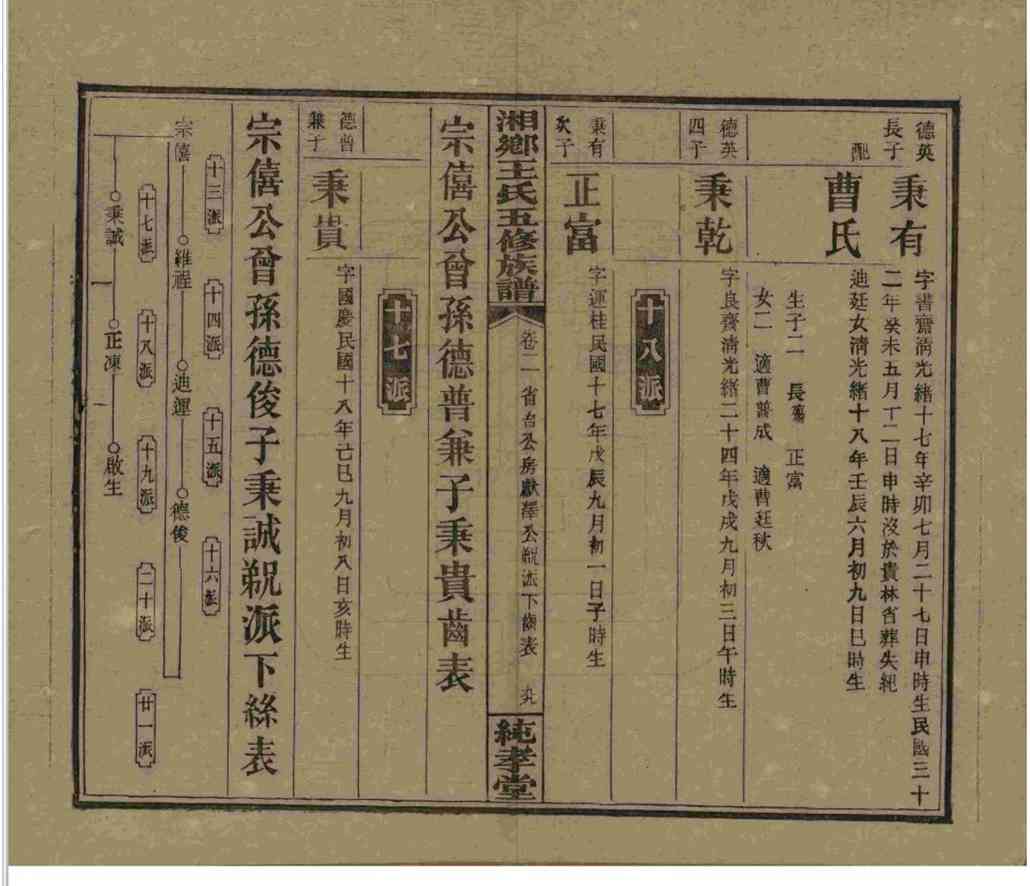 德英
長子
秉有
字書齋清光緒十七年辛卯七月二十七日申時生民國三十
二年癸未五月丁二日申時沒於貴林省葬失紀
配
曹氏
迪廷女清光緒十八年壬辰六月初九日巳時生
生子二 長 正富
女二 適曹普成 適曹廷秋
德英
四子
秉乾
字良齋清光緒二十四年戊戌九月初三日午時生
十八派
秉有
次子
正富
字運桂民國十七年戊辰九月初一日子時生
湘鄉王氏五修族譜
卷二 省台公房獻澤公覡派下齒表 九
純孝堂
宗僖公曾孫德普兼子秉貴齒表
十七派
德普
兼子
秉貴
字國慶民國十八年己巳九月初八日亥時生
宗僖公曾孫德俊子秉誠覡派下絲表
十三派 十四派 十五派 十六派
宗僖 維程 迪運 德俊
十七派 十八派 十九派 二十派 廿一派
秉誠 正凍 啟生